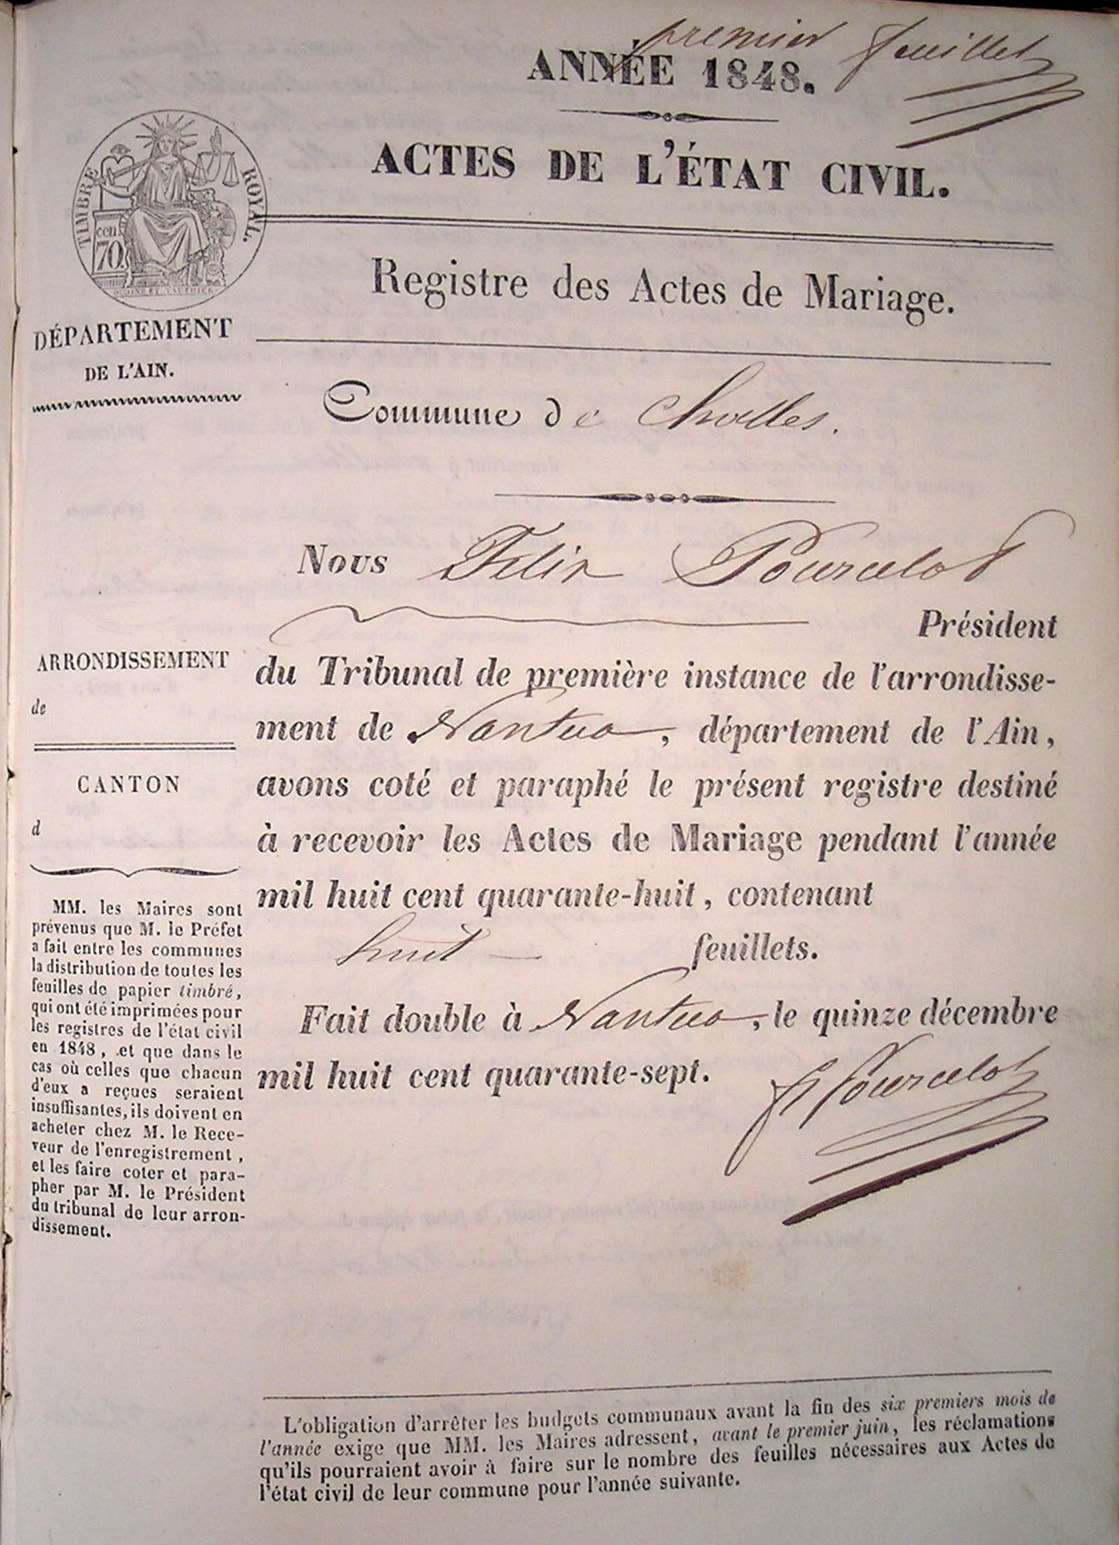 premier feuillet
ANNÉE 1848.
ACTES DE L'ÉTAT CIVIL.
TIMBRE ROYAL.
cen
70.
Registre des Actes de Mariage.
DÉPARTEMENT
DE L'AIN.
Commune de
Nous Félix Pourcelot
Président
du Tribunal de première instance de l'arrondisse-
ment de Nantua, département de l'Ain,
avons coté et paraphé le présent registre destiné
à recevoir les Actes de Mariage pendant l'année
mil huit cent quarante-huit, contenant
huit feuillets.
Fait double à Nantua, le quinze décembre
mil huit cent quarante-sept.
Pourcelot
ARRONDISSEMENT
de
CANTON
d
MM. les Maires sont
prévenus que M. le Préfet
a fait entre les communes
la distribution de toutes les
feuilles de papier timbré,
qui ont été imprimées pour
les registres de l'état civil
en 1848, et que dans le
cas où celles que chacun
d'eux a reçues seraient
insuffisantes, ils doivent en
acheter chez M. le Rece-
veur de l'enregistrement,
et les faire coter et para-
pher par M. le Président
du tribunal de leur arron-
dissement.
L'obligation d'arrêter les budgets communaux avant la fin des six premiers mois de
l'année exige que MM. les Maires adressent, avant le premier juin, les réclamations
qu'ils pourraient avoir à faire sur le nombre des feuilles nécessaires aux Actes de
l'état civil de leur commune pour l'année suivante.